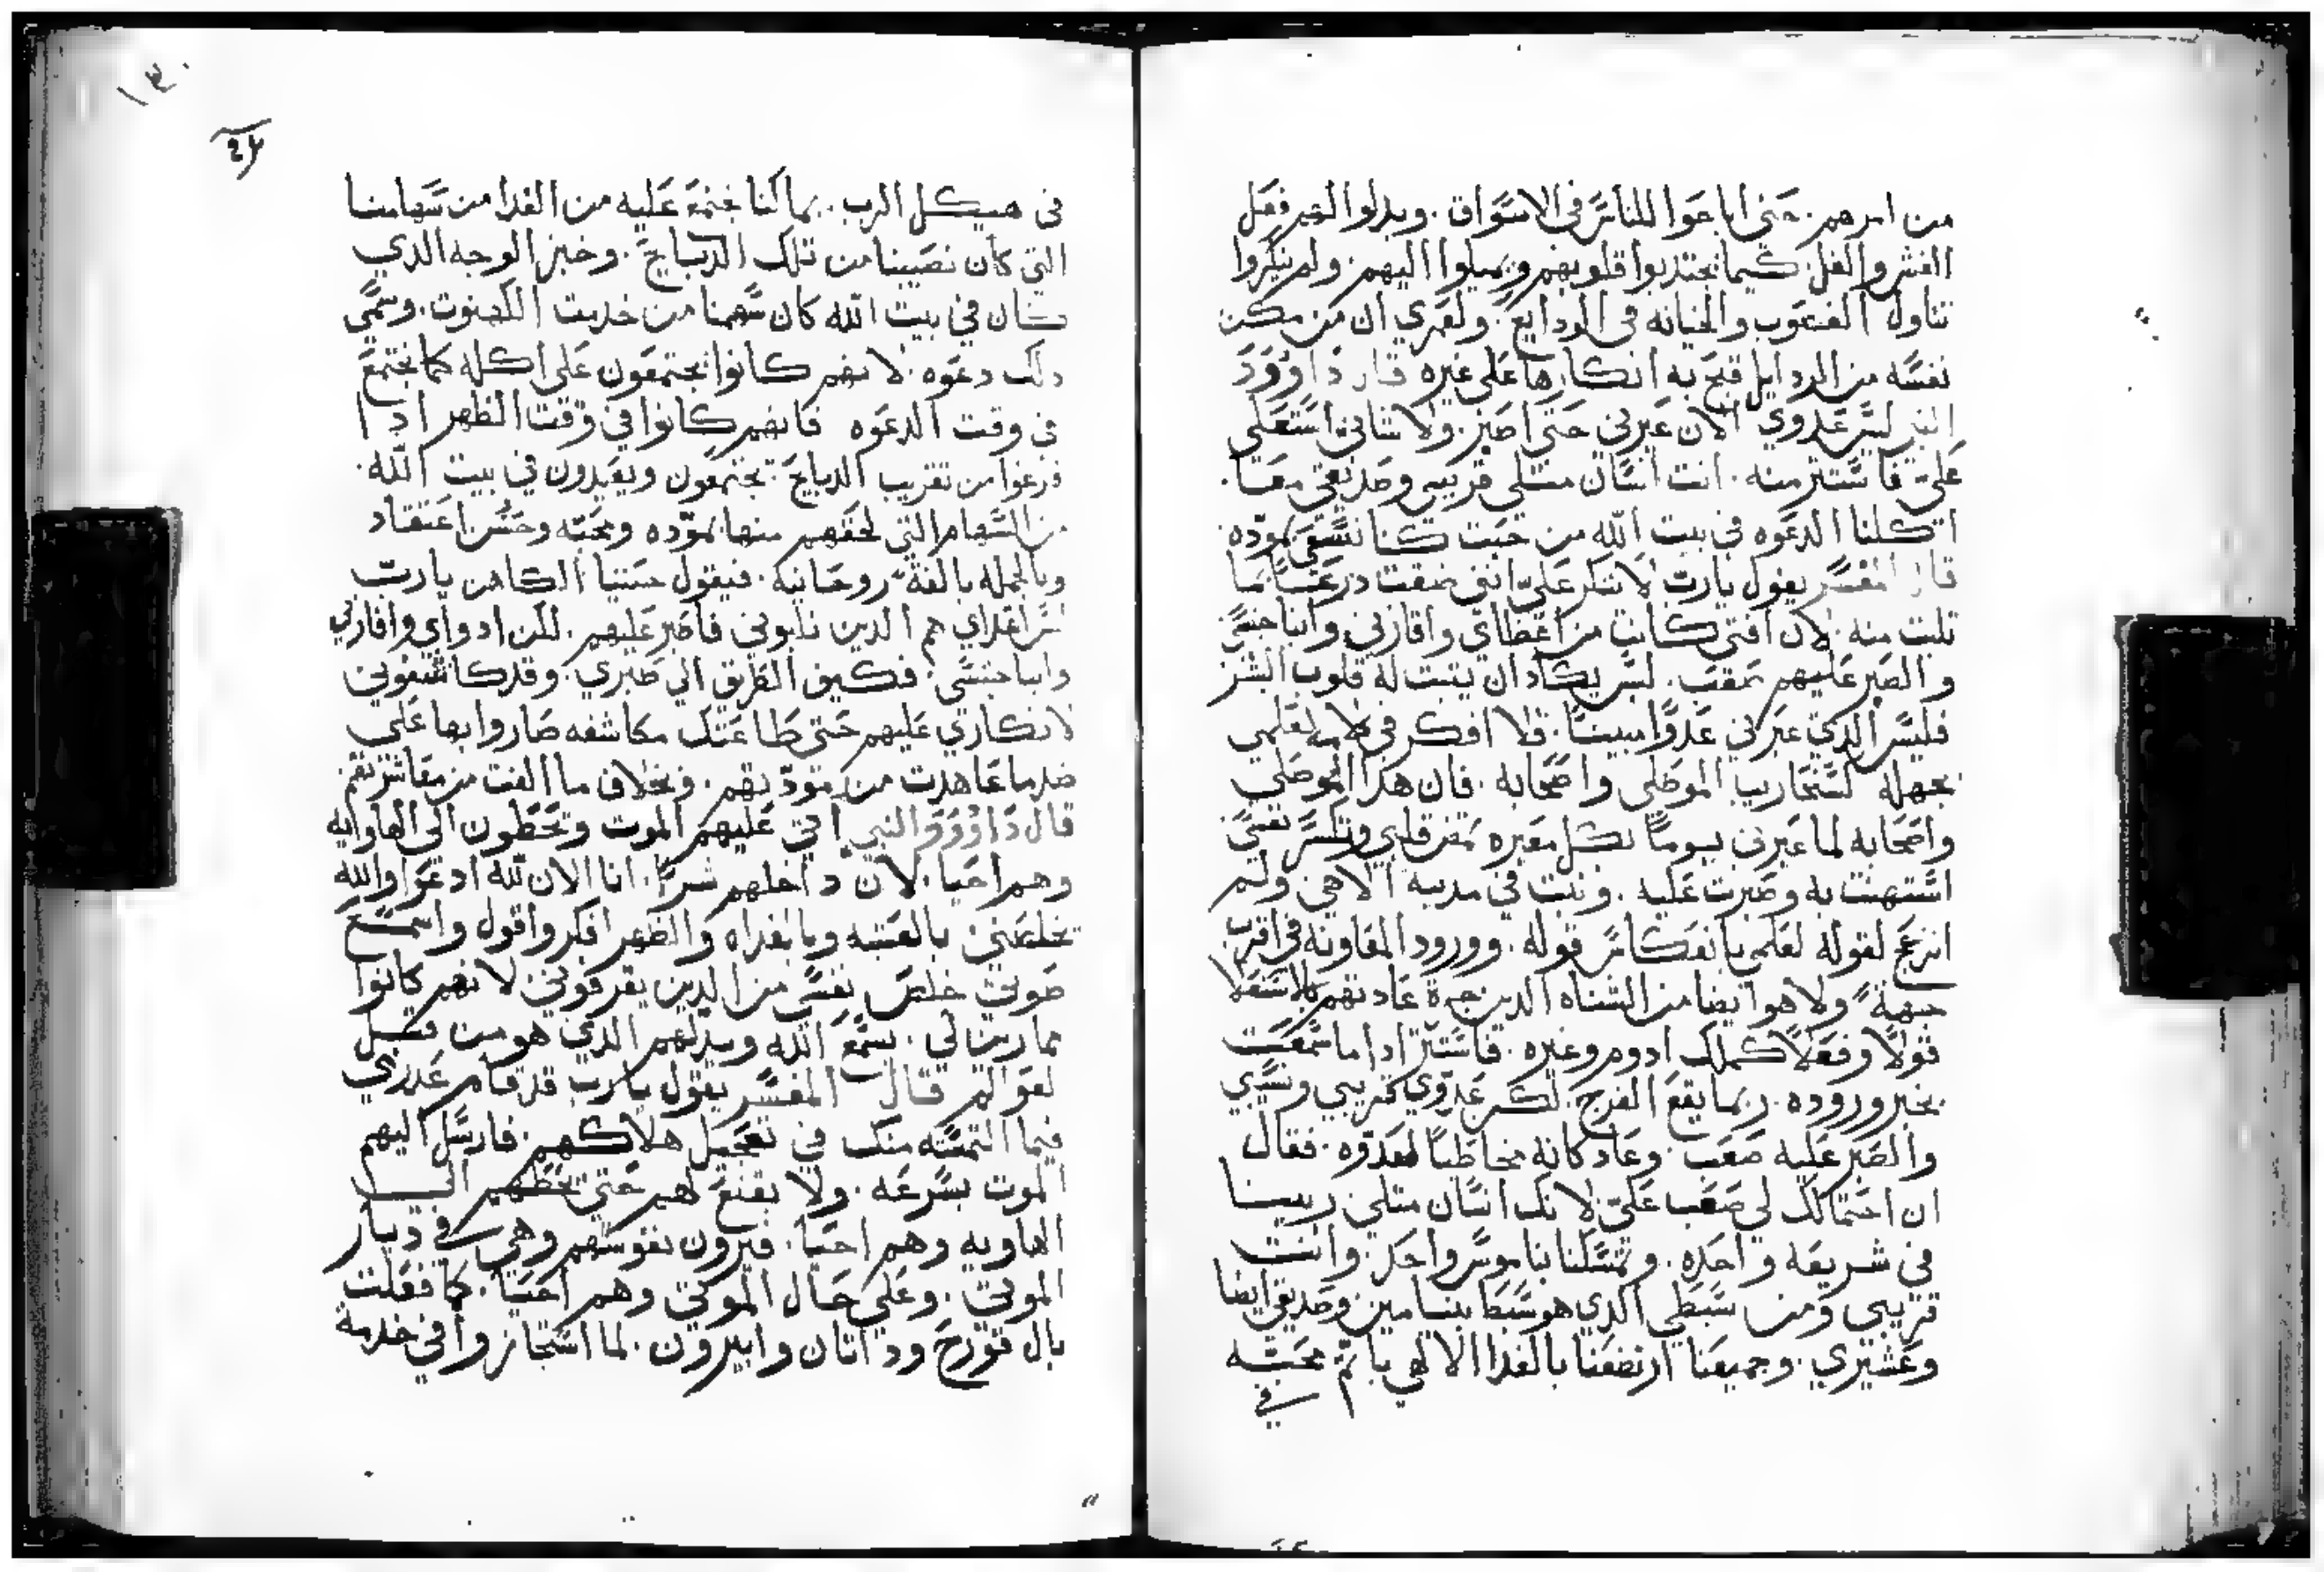 من امرهم. حتى اباعوا للناس في الاسواق. وبدلوا لهم فعل
الغش والغل. كيما يجتدبوا قلوبهم ويميلوا اليهم. ولم ينكروا
تناول العيوب والخيانه في الودايع. ولعمري ان من مكن
نفسه من الردايل قبح به انكارها على غيره قال داوود
النبي ليس عدوي الان عيرني حتى اصبر. ولا شاني استعلى
علي فاستتر منه. انت انسان متلي قريبي وصديقي معا.
اكلنا الدعوه في بيت الله من حيت كنا نسعى بموده
قال المفسر يقول يارب لا تنكر علي انني ضقت درعا بما
تلبت منه. لان افتي كانت من اعطاي واقاربي وابنا جنسي
والصبر عليهم صعب. ليس يكاد ان يتبت له قلوب البشر
فليس الذي عيرني عدوا مبينا. فلا افكر في كلامه لعلمي
بجهله كسنحاريب الموصلي واصحابه. فان هذا الموصلي
واصحابه لما عيرني يوما بكل معيره تمض قلبي وتكسر نفسي
استهنت به وصبرت عليه. وتبت في مدينة الاهي ولم
انزعج لقوله لعلمي بانعكاس قوله. وورود المعاونه في اقرب
جهة ولا هو ايضا من الشناه الدين جرة عادتهم بالاستعلا
قولا وفعلا كملك ادوم وغيره. فاستتر ادا ما سمعت
بخبر وروده. ربما يقع الفرج. لكن عدوي قريبي ونسيبي
والصبر عليه صعب. وعاد كانه مخاطبا لعدوه. فقال
ان احتمالك لي صعب علي لانك انسان متلي ربينا
في شريعه واحده. وتمسكنا بناموس واحد. وانت
قريبي ومن سبطي الدي هو سبط بنيامين وصديقي ايضا
وعشيري. وجميعنا ارتضعنا بالغدا الالهي باتم محبته
في
١٣٠
في هيكل الرب. بما كنا نجتمع عليه من الغدا من سهامنا
التي كان نصيبنا من تلك الدبايح. وخبز الوجه الدي
كان في بيت الله كان سهمنا من خدمت الكهنوت. وسمي
دلك دعوه. لانهم كانوا يجتمعون على اكله كما نجتمع
في وقت الدعوه فانهم كانوا في وقت الظهر ادا
فرغوا من تقريب الدبايح يجتمعون ويعيدون في بيت الله.
من السهام التي لحقهم منها بموده ومحبه وحسن اعتقاد
وبالجمله بالفة روحانيه. فيقول حنينا الكاهن يارب
ليس اعداي هم الدين تلبوني فاصبر عليهم. لكن ادواي واقاربي
وابنا جنسي. فكيف الطريق الى صبري. وقد كاشفوني
لانكاري عليهم حتى طاعتك مكاشفه صاروا بها علي
ضد ما عاهدت من مودتهم. وبخلاف ما الفت من معاشرتهم
قال داوود النبي اتي عليهم الموت وتحطون الى الهاويه
وهم احيا. لان داخلهم شرا. انا الان لله ادعوا والله
يخلصني بالعشيه وبالغداه والظهر افكر واقول واسمع
صوتي خلص نفسي من الدين يقرفوني لانهم كانوا
ممارين لي. يسمع الله ويدلهم الدي هو من قبل
العوالم قال المفسر يقول يارب قد قام عدري
فيما التمسته منك في تعجيل هلاكهم. فارسل اليهم
الموت بسرعه. ولا يقنع لهم حتى تحطهم الى
الهاويه وهم احيا. فيرون نفوسهم وهي في ديار
الموتى. وعلى حال الموتى وهم احيا. كما فعلت
بال قورح وداتان وابيرون. لما استجازوا في خدمة